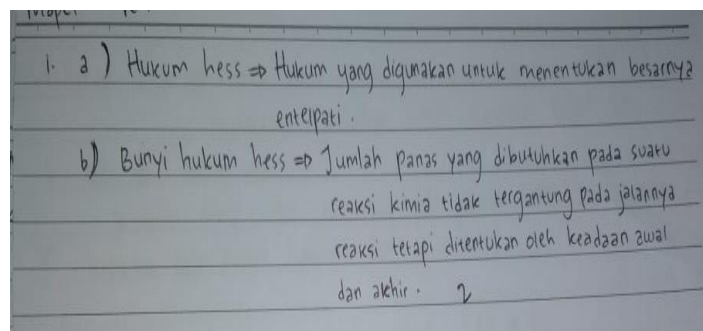 1. a) Hukum hess ⇒ Hukum yang digunakan untuk menentukan besarnya
entelpati.
b) Bunyi hukum hess ⇒ Jumlah panas yang dibutuhkan pada suatu
reaksi kimia tidak tergantung pada jalannya
reaksi tetapi ditentukan oleh keadaan awal
dan akhir. 2